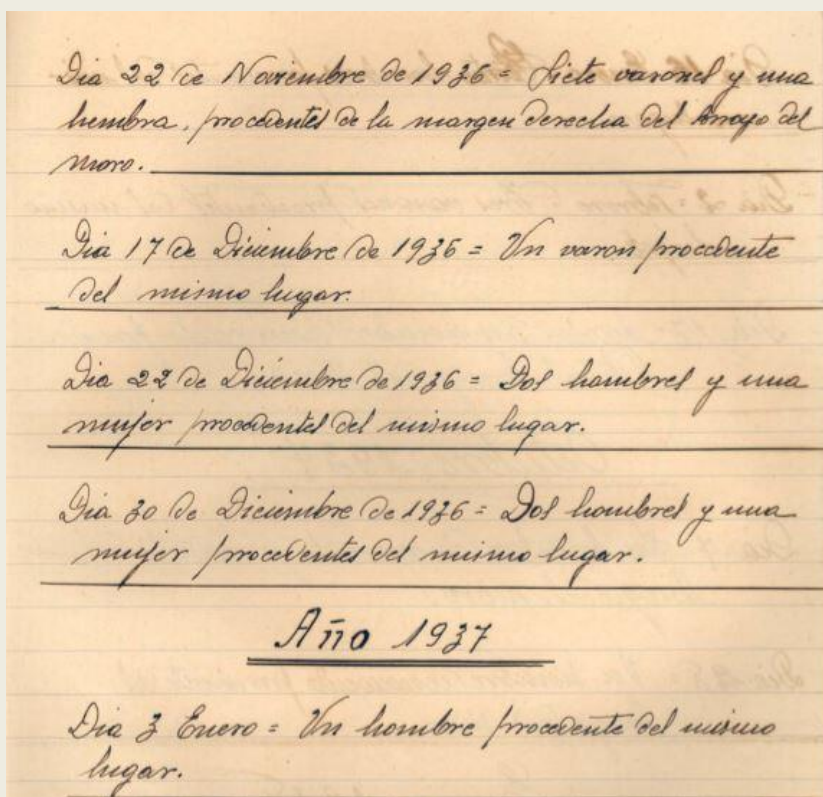 Dia 22 de Noviembre de 1936 = Siete varones y una
hembra, procedentes de la margen derecha del Arroyo del
moro.
Dia 17 de Diciembre de 1936 = Un varon procedente
del mismo lugar.
Dia 22 de Diciembre de 1936 = Dos hombres y una
mujer procedentes del mismo lugar.
Dia 30 de Diciembre de 1936 = Dos hombres y una
mujer procedentes del mismo lugar.
Año 1937
Dia 3 Enero = Un hombre procedente del mismo
lugar.